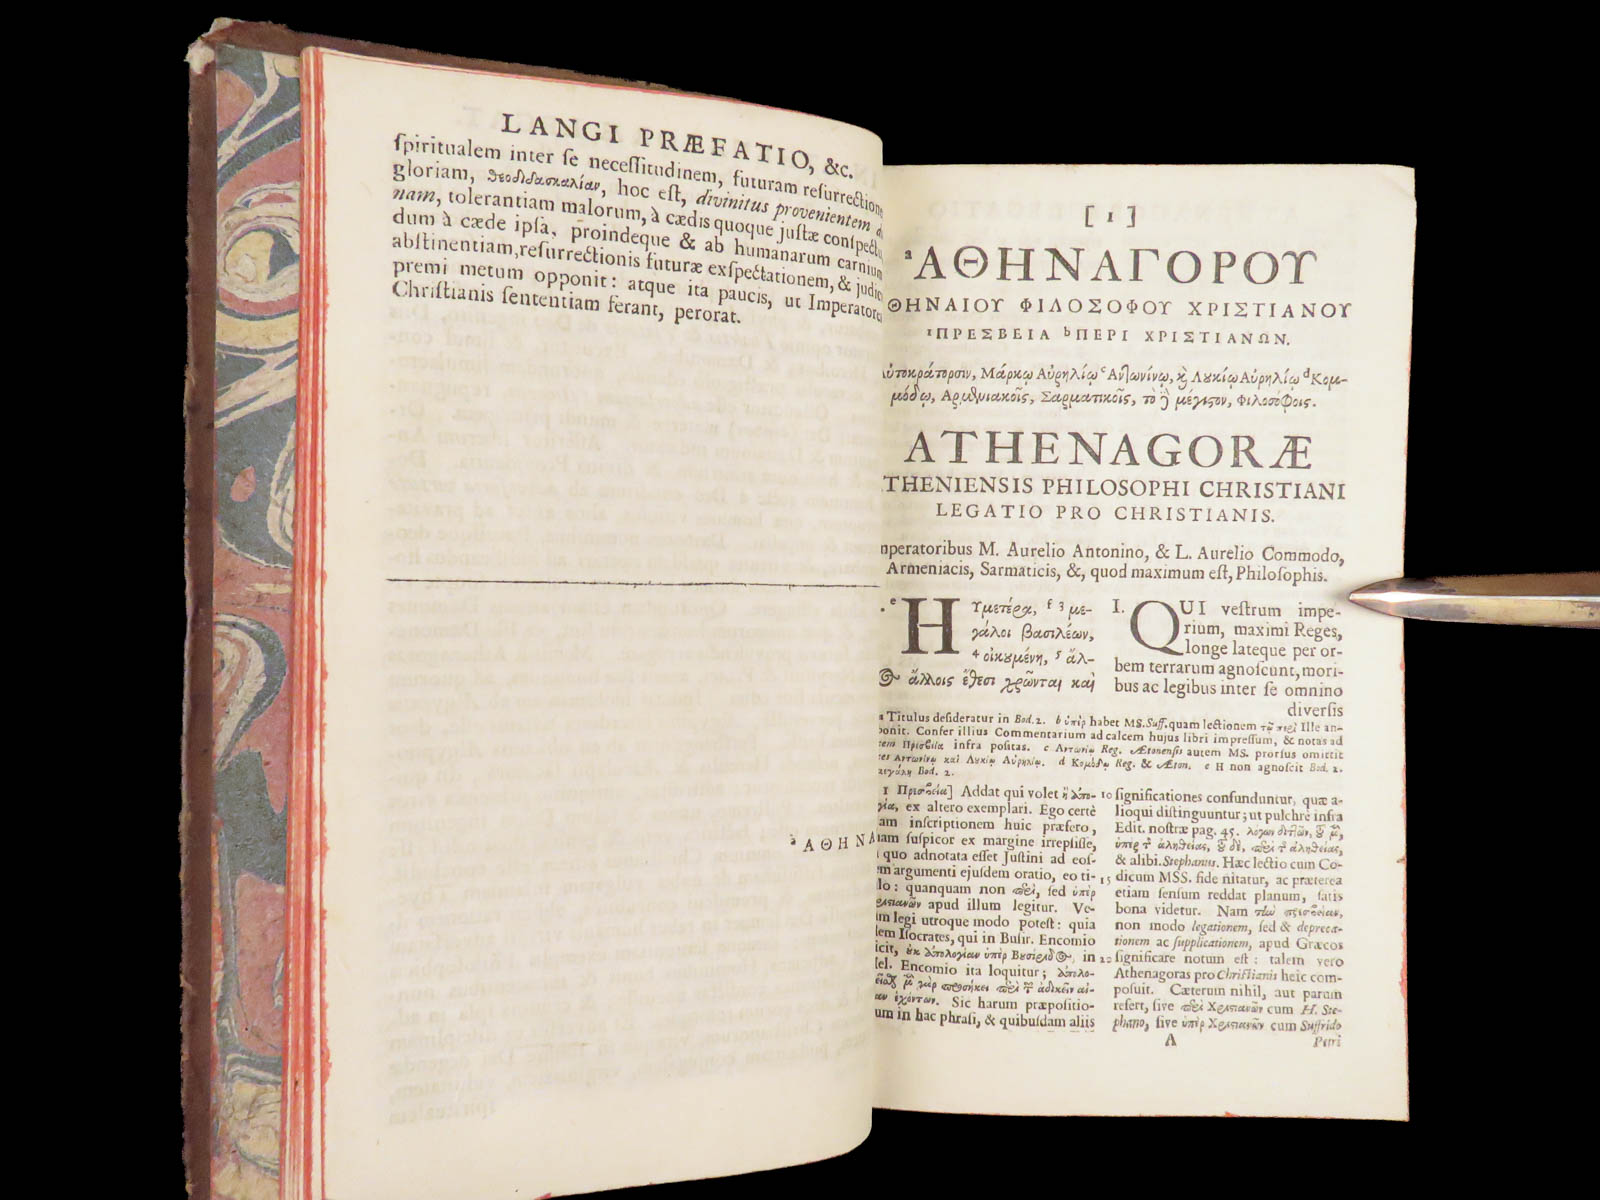 LANGI PRÆFATIO, &c.
ſpiritualem inter ſe neceſſitudinem, futuram reſurrectione
gloriam, θεοδιδασκαλίαν, hoc eſt, divinitus provenientem d
nam, tolerantiam malorum, à cædis quoque juſtæ conſpectu
dum à cæde ipſa, proindeque & ab humanarum carnium
abſtinentiam, reſurrectionis futuræ exſpectationem, & judic
premi metum opponit: atque ita paucis, ut Imperatores
Chriſtianis ſententiam ferant, perorat.
ᵃ ΑΘΗΝΑ
[ 1 ]
ᵃ ΑΘΗΝΑΓΟΡΟΥ
ΘΗΝΑΙΟΥ ΦΙΛΟΣΟΦΟΥ ΧΡΙΣΤΙΑΝΟΥ
¹ ΠΡΕΣΒΕΙΑ ᵇ ΠΕΡΙ ΧΡΙΣΤΙΑΝΩΝ.
Αὐτοκράτορσιν, Μάρκῳ Αὐρηλίῳ ᶜ Ἀντωνίνῳ, ϗ Λυκίῳ Αὐρηλίῳ ᵈ Κομ-
μόδῳ, Ἀρμενιακοῖς, Σαρματικοῖς, τὸ ἢ μέγιστον, Φιλοσόφοις.
ATHENAGORÆ
THENIENSIS PHILOSOPHI CHRISTIANI
LEGATIO PRO CHRISTIANIS.
mperatoribus M. Aurelio Antonino, & L. Aurelio Commodo,
Armeniacis, Sarmaticis, &, quod maximum eſt, Philoſophis.
ᵉ Η Υμετέρα, ᶠ ³ με-
γάλοι βασιλέων,
⁴ οἰκουμένη, ⁵ ἄλ-
ἄλλοις ἔθεσι χρῶνται καὶ
I. QUI veſtrum impe-
rium, maximi Reges,
longe lateque per or-
bem terrarum agnoſcunt, mori-
bus ac legibus inter ſe omnino
diverſis
a Titulus deſideratur in Bod. 2. b ὑπὲρ habet MS. Suff. quam lectionem τῷ περὶ Ille an-
ponit. Confer illius Commentarium ad calcem hujus libri impreſſum, & notas ad
Πρεσβεία infra poſitas. c Ἀντωνίῳ Reg. Ætonenſis autem MS. prorſus omittit
Ἀντωνίνῳ καὶ Λυκίῳ Αὐρηλίῳ. d Κομόδῳ Reg. & Æton. e Η non agnoſcit Bod. 2.
Bod. 2.
1 Πρεσβεία] Addat qui volet ἢ ἀπο-
γία, ex altero exemplari. Ego certè
am inſcriptionem huic præfero,
iam ſuſpicor ex margine irrepſiſſe,
quo adnotata eſſet Juſtini ad eoſ-
em argumenti ejuſdem oratio, eo ti-
lo: quanquam non περὶ, ſed ὑπὲρ
apud illum legitur. Ve-
m legi utroque modo poteſt: quia
dem Iſocrates, qui in Buſir. Encomio
icit, ὐκ ἀπολογίαν ὑπὲρ Βυσίριδος, in
el. Encomio ita loquitur; ἀπολο-
γεῖσθ μ γὰρ προσήκει περὶ τ ἀδικεῖν αἰ-
αν ἐχόντων. Sic harum præpoſitio-
um in hac phraſi, & quibuſdam aliis
10 ſignificationes confunduntur, quæ a-
lioqui diſtinguuntur; ut pulchrè infra
Edit. noſtræ pag. 45. λόγων διττῶν, τ μ,
ὑπὲρ τ ἀληθείας, τ δὲ, περὶ τ ἀληθείας,
& alibi. Stephanus. Hæc lectio cum Co-
15 dicum MSS. fide nitatur, ac præterea
etiam ſenſum reddat planum, ſatis
bona videtur. Nam τὴν πρεσβείαν,
non modo legationem, ſed & depreca-
tionem ac ſupplicationem, apud Græcos
20 ſignificare notum eſt: talem vero
Athenagoras pro Chriſtianis heic com-
poſuit. Cæterum nihil, aut parum
refert, ſive περὶ Χριστιανῶν cum H. Ste-
phano, ſive ὑπὲρ Χριστιανῶν cum Suffrido
A
Petri